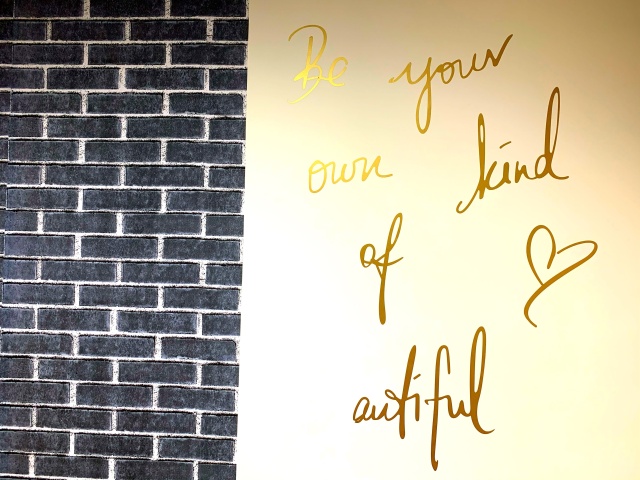 Be your
own kind
of
autiful